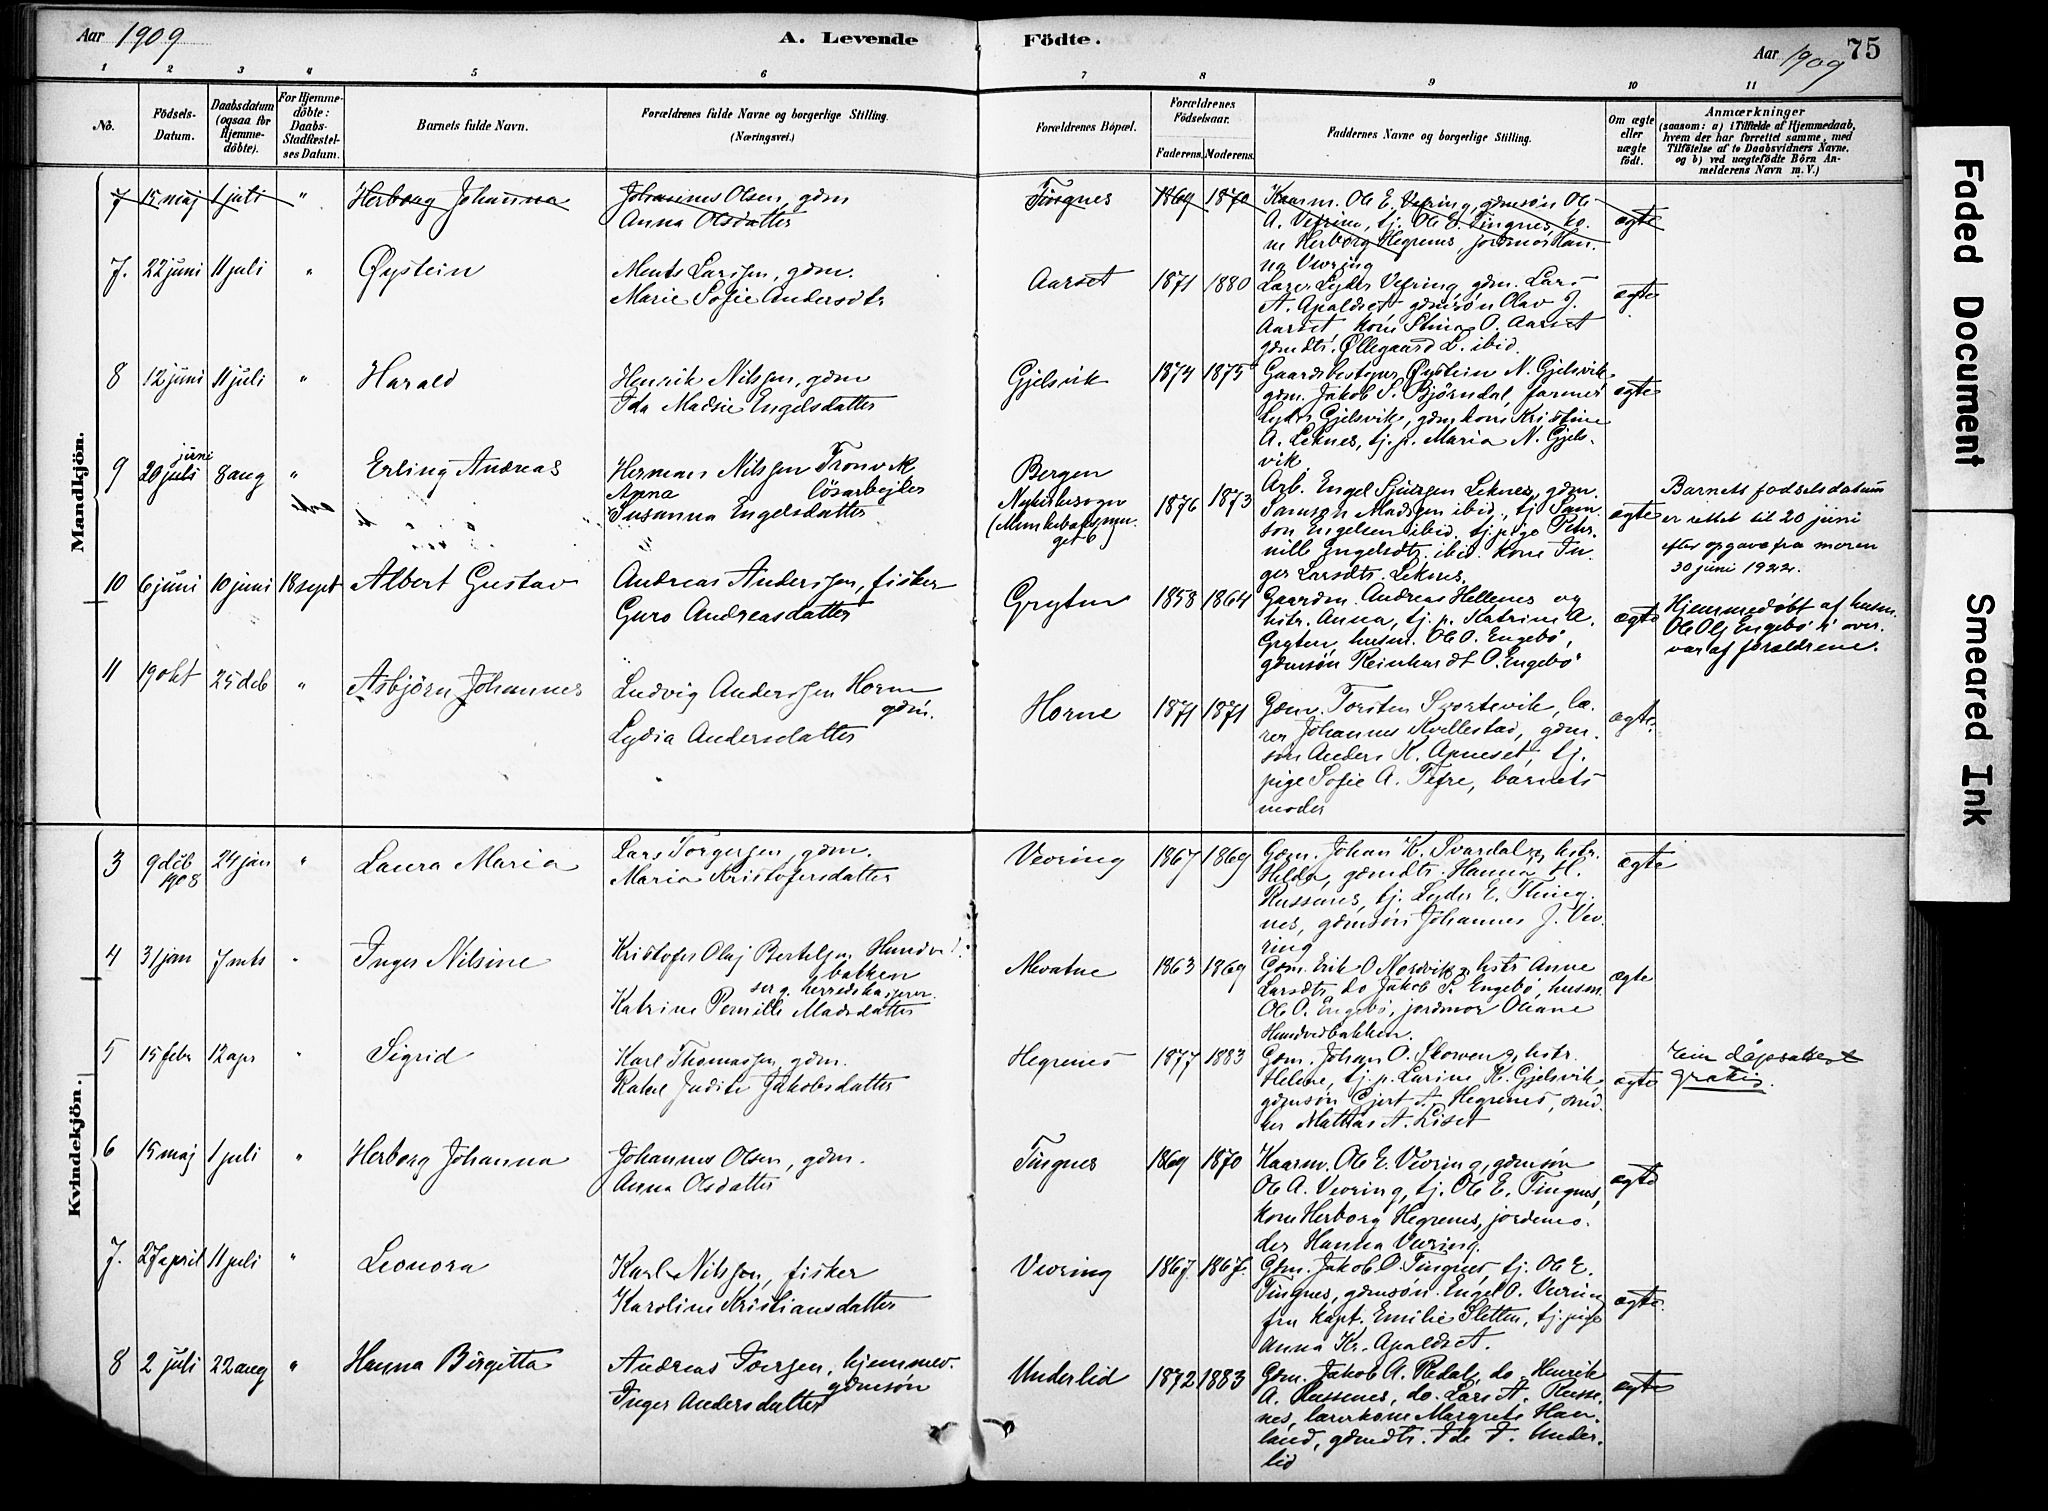 Aar 1909
A. Levende Födte.
Aar 1909 75
1 2 3 4 5 6 7 8 9 10 11
No.
Födsels-
Datum.
Daabsdatum
(ogsaa for
Hjemme-
döbte).
For Hjemme-
döbte:
Daabs-
Stadfæstel-
ses Datum.
Barnets fulde Navn.
Forældrenes fulde Navne og borgerlige Stilling.
(Næringsvei.)
Forældrenes Bópæl.
Forældrenes
Födselsaar.
Faderens. Moderens.
Faddernes Navne og borgerlige Stilling.
Om ægte
eller
uægte
født.
Anmærkninger
(saasom: a) i Tilfælde af Hjemmedaab,
hvem der har forrettet samme, med
Tilföielse af to Daabsvidners Navne.
og b) ved uægtefödte Börn An-
melderens Navn m. V.)
Mandkjön.
7 15 maj 1 juli " Herborg Johanna
Johannes Olsen, gdm
Anna Olsdatter
Tingnes 1869 1870
Kaarm. Ole E. Vefring, gdmsøn Ole
A. Vefring, tj. Ole E. Tingnes, ko-
ne Herborg Hegrenes, jordmor Han-
na Vevring
ægte
7. 22 juni 11 juli " Øystein
Ments Larssen, gdm.
Marie Sofie Andersdtr
Aarset 1871 1880
Lars Lyder Vefring, gdm. Lars
A. Apaldset gdmsøn Olav J.
Aarset, kone Stina O. Aarset
gdmdtr. Øllegaard L. ibid.
ægte
8 12 juni 11 juli " Harald
Henrik Nilssen, gdm
Ida Madsie Engelsdatter
Gjelsvik 1874 1875
Gaardbestyrer Øystein N. Gjelsvik
gdm. Jakob S. Bjørndal, farmer
Lyder Gjelsvik, gdmkone Kristine
A. Leknes, tj. p. Maria N. Gjels-
vik
ægte
9 20 juli juni 8 aug " Erling Andreas
Herman Nilssen Tronvik
Anna løsarbejder
Susanna Engelsdatter
Bergen
Nykirkesogn
1876 1873
Arb. Engel Sjursen Leknes, gdm.
Samson Madssen ibid., tj. Sam-
son Engelsen ibid, tj. pige Per-
nille Engelsdtr. ibid. kone In-
ger Larsdtr. Leknes.
ægte
Barnets fødselsdatum
er rettet til 20 juni
efter opgave fra moren
30 juni 1922.
10 6 juni 10 juni 18 sept Albert Gustav
Andreas Anderssen, fisker
Guro Andreasdatter
Gryten 1858 1864
Gaardm. Andreas Hellenes og
hstr. Anna, tj. p. Katrine A.
Gryten, husm. Ole O. Engebø,
gdmsøn Reinhardt O. Engebø
ægte
Hjemmedøbt af husm.
Ole Olj Engebø i over-
vær af forældrene.
11 19 okt 25 deb " Asbjørn Johannes
Ludvig Anderssen Horne
gdm.
Lydia Andersdatter
Horne 1871 1871
Gdm. Torsten Svortevik, læ-
rer Johannes Kvellestad, gdm-
søn Anders K. Apneset, tj.
pige Sofie A. Tefre, barnets
moder
ægte.
Kvindekjön.
3 9 deb 1908 24 jan " Laura Maria
Lars Torgersen, gdm.
Maria Kristofersdatter
Vevring 1867 1869
Gdm. Johan K. Svardal og hstr.
Helda, gdmdtr. Hanna H.
Russenes, tj. Lyder E. Thing-
nes, gdmsøn Johannes J. Vev-
ring
ægte
4 31 jan 7 mts " Inger Nilsine
Kristofer Olaj Bertelsen Hundvid-
bakken
serg. herredskasserer
Katrine Pernille Madsdatter
1863 1869
Gdm. Erik O Nordvik og hstr Anne
Larsdtr, do Jakob P. Engebø, husm.
Ole O. Engebø, jordmor Oliane
Hundvidbakken.
ægte
5 15 febr 12 apr " Sigrid
Karl Thomassen, gdm.
Rakel Judite Jakobsdatter
Hegrenes 1877 1883
Gdm. Johan O. Skoven og hstr.
Helene, tj. p. Larine K. Gjelsvik,
gdmsøn Gjert A. Hegrenes, snid-
ker Mathias A. Liset
ægte
Ein dåpsattest
gratis.
6 15 maj 1 juli " Herborg Johanna
Johannes Olsen, gdm.
Anna Olsdatter
Tingnes 1869 1870
Kaarm. Ole E. Vevring, gdmsøn
Ole A. Vevring, tj. Ole E. Tingnes,
kone Herborg Hegrenes, jordemo-
der Hanna Vevring.
ægte
7. 27 april 11 juli " Leonora
Karl Nilssen, fisker
Karoline Kristiansdatter
Vevring 1867. 1867.
Gdm. Jakob O. Tingnes, tj. Ole E.
Tingnes, gdmsøn Engel O. Vevring
fru kapt. Emilie Sletten, tj. pige
Anna Kr. Apaldset.
ægte.
8 2 juli 22 aug " Hanna Birgitta
Andreas Toersen, hjemmev.
gdmsøn
Inger Andersdatter
Underlid 1872 1883
Gdm. Jakob A. Redal, do. Henrik
A. Russenes, do. Lars A. Russe-
nes, lærerkone Margrete Hau-
land, gdmdtr. Ida T. Under-
lid
ægte
Faded Document
Smeared Ink